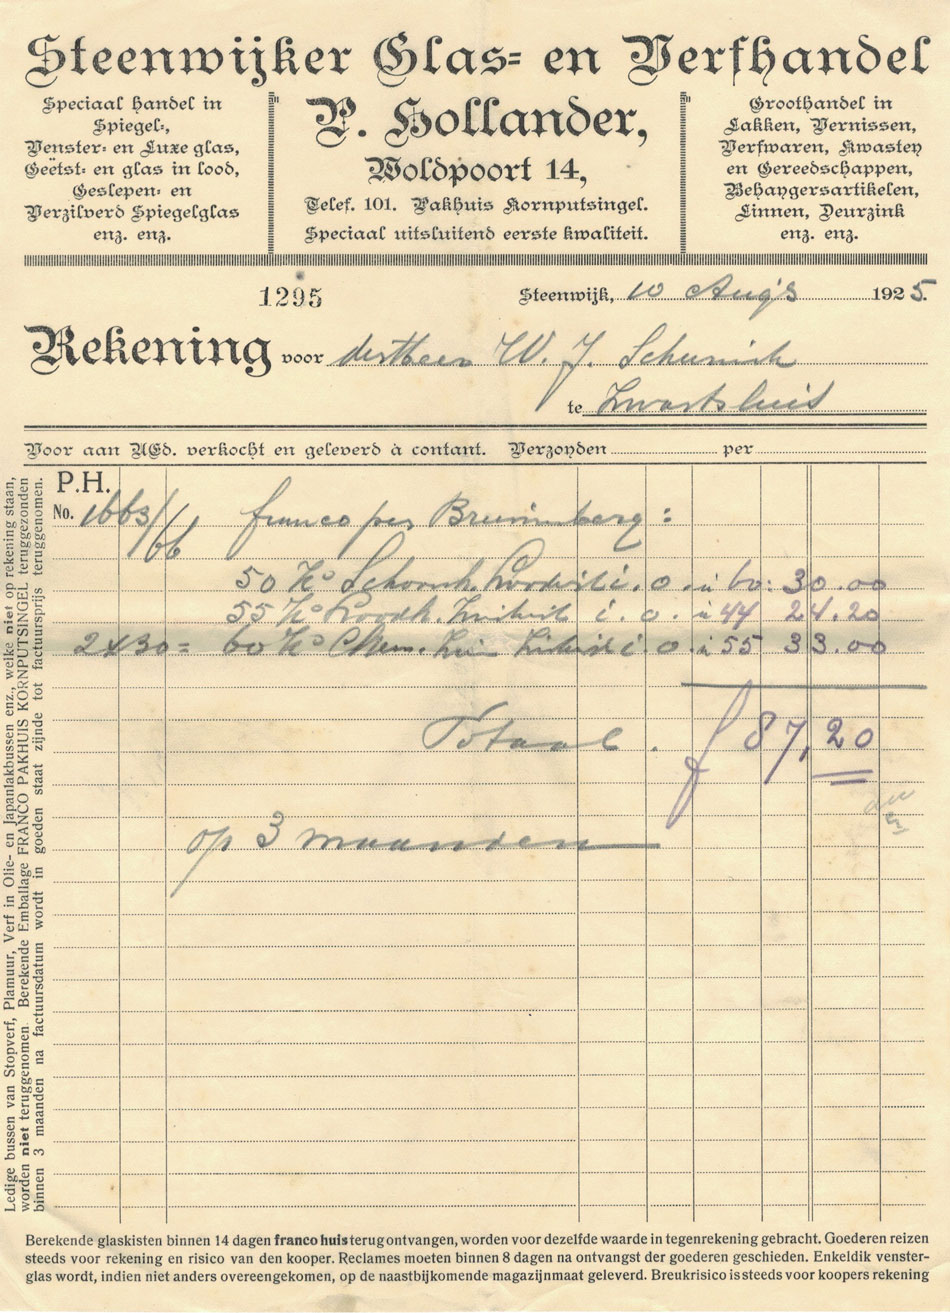 Steenwijker Glas- en Verfhandel
Speciaal handel in
Spiegel-,
Venster- en Luxe glas,
Geëtst- en glas in lood,
Geslepen- en
Verzilverd Spiegelglas
enz. enz.
P. Hollander,
Woldpoort 14,
Telef. 101. Pakhuis Kornputsingel.
Speciaal uitsluitend eerste kwaliteit.
Groothandel in
Lakken, Vernissen,
Verfwaren, Kwasten
en Gereedschappen,
Behangersartikelen,
Linnen, Deurzink
enz. enz.
1295
Steenwijk, 10 Aug's 1925.
Rekening voor W. J.
te Zwartsluis
Voor aan UEd. verkocht en geleverd à contant. Verzonden per
P.H.
No. 1663/66 franco per :
50 Ko i. o. à 60: 30.00
55 Ko i. o. à 44 24.20
2x30= 60 Ko i. o. à 55 33.00
Totaal. f 87,20
op 3 maanden
Ledige bussen van Stopverf, Plamuur, Verf in Olie- en Japanlakbussen enz., welke niet op rekening staan,
worden niet teruggenomen. Berekende Emballage FRANCO PAKHUIS KORNPUTSINGEL teruggezonden
binnen 3 maanden na factuursdatum wordt in goeden staat zijnde tot factuursprijs teruggenomen.
Berekende glaskisten binnen 14 dagen franco huis terug ontvangen, worden voor dezelfde waarde in tegenrekening gebracht. Goederen reizen
steeds voor rekening en risico van den kooper. Reclames moeten binnen 8 dagen na ontvangst der goederen geschieden. Enkeldik venster-
glas wordt, indien niet anders overeengekomen, op de naastbijkomende magazijnmaat geleverd. Breukrisico is steeds voor koopers rekening